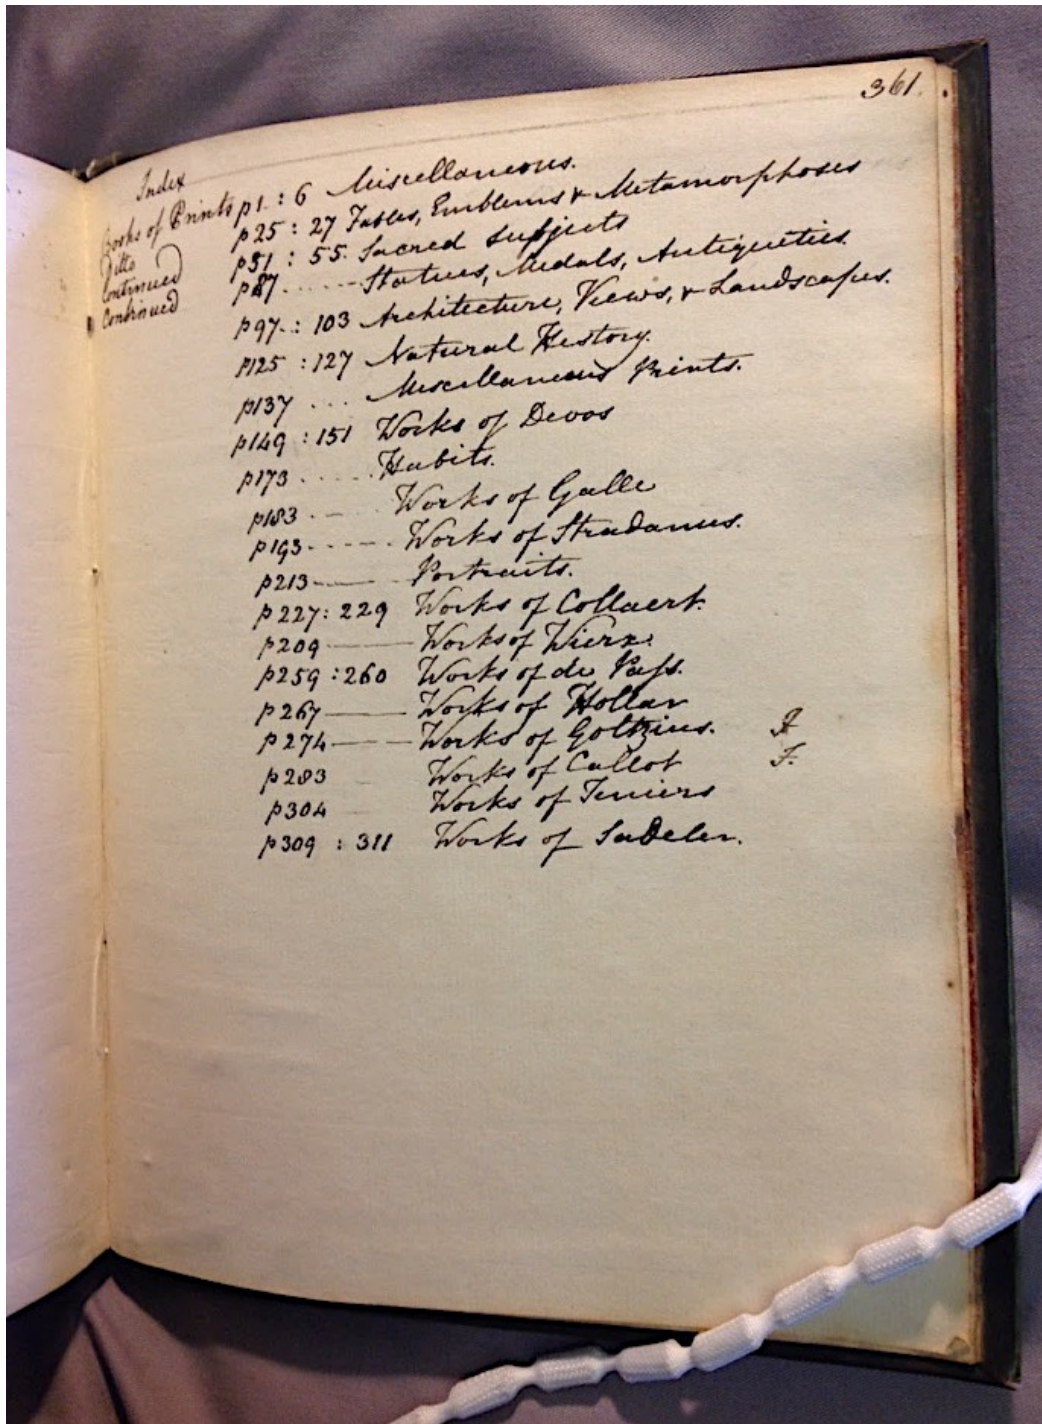 361.
Index
Books of Prints p1 : 6 Miscellaneous.
Ditto p25 : 27 Fables, Emblems & Metamorphoses
Continued p51 : 55. Sacred Subjects
Continued p87 ...... Statues, Medals, Antiquities.
p97 : 103 Architecture, Views, & Landscapes.
p125 : 127 Natural History.
p137 ... Miscellaneous Prints.
p149 : 151 Works of Devos
p173 ..... Habits.
p183 .— Works of Galle
p193 ----- Works of Stradanus.
p213 —— Portraits.
p227 : 229 Works of Collaert.
p209 —— Works of Wierx.
p259 : 260 Works of de Paſs.
p267 —— Works of Hollar
p274 —— Works of Goltzius.
p283 Works of Callot F.
p304 Works of Teniers
p309 : 311 Works of Sadeler.